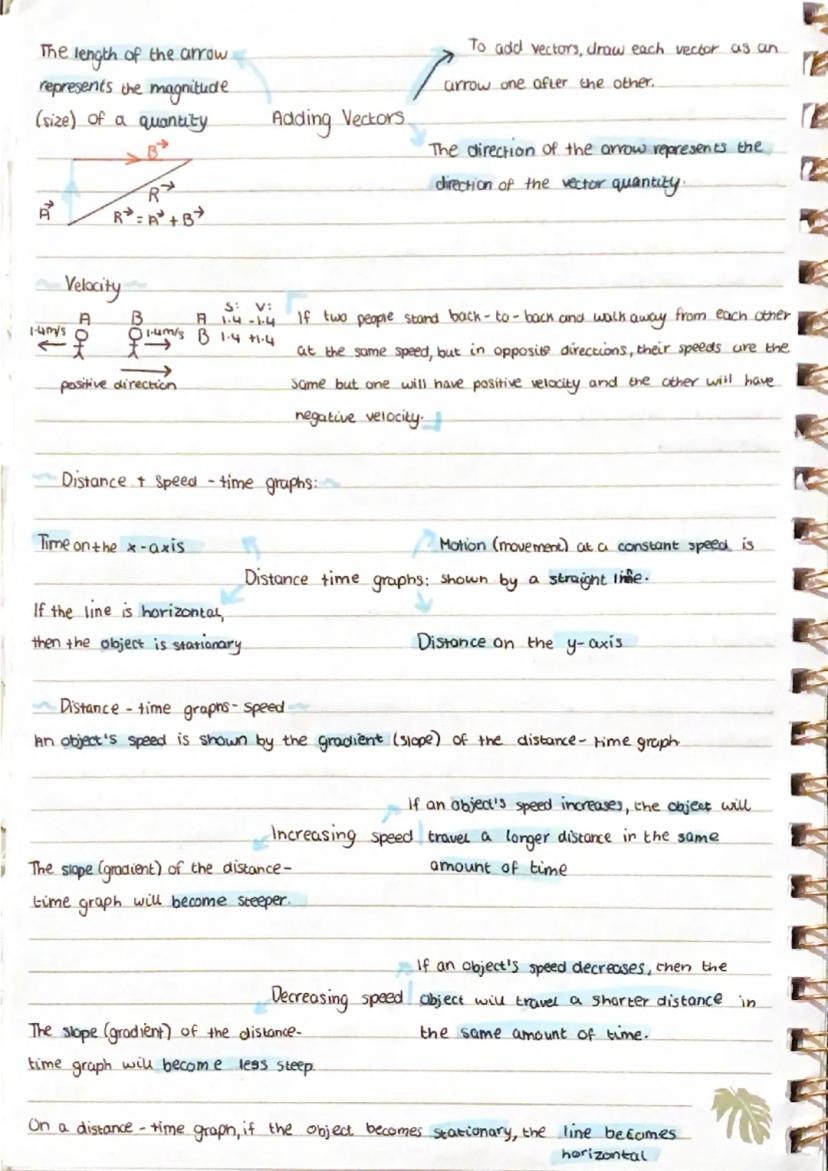 The length of the arrow
represents the magnitude
(size) of a quantity
Adding Vectors
To add vectors, draw each vector as an
arrow one after the other.
The direction of the arrow represents the
direction of the vector quantity.
B→
A→
R→
R→ = A→ + B→
Velocity
A B
1.4m/s 1.4m/s
positive direction
S: V:
A 1.4 -1.4
B 1.4 +1.4
If two people stand back-to-back and walk away from each other
at the same speed, but in opposite directions, their speeds are the
same but one will have positive velocity and the other will have
negative velocity.
Distance + Speed - time graphs:
Time on the x-axis
Motion (movement) at a constant speed is
Distance time graphs: shown by a straight line.
If the line is horizontal,
then the object is stationary
Distance on the y-axis
Distance - time graphs - speed
An object's speed is shown by the gradient (slope) of the distance-time graph
If an object's speed increases, the object will
Increasing speed travel a longer distance in the same
amount of time
The slope (gradient) of the distance-
time graph will become steeper.
If an object's speed decreases, then the
Decreasing speed object will travel a shorter distance in
the same amount of time.
The slope (gradient) of the distance-
time graph will become less steep.
On a distance-time graph, if the object becomes stationary, the line becomes
horizontal